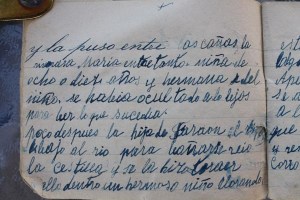 y la puso entre las cañas. la
María entretanto, niña de
ocho o diez años y hermana del
niño, se habia ocultado a lo lejos
para ber lo que sucedia.
poco despues la hija de Faraon
bajo al rio para bañarse
la cesta y se la hizo traer
ello dentro un hermoso niño llorando